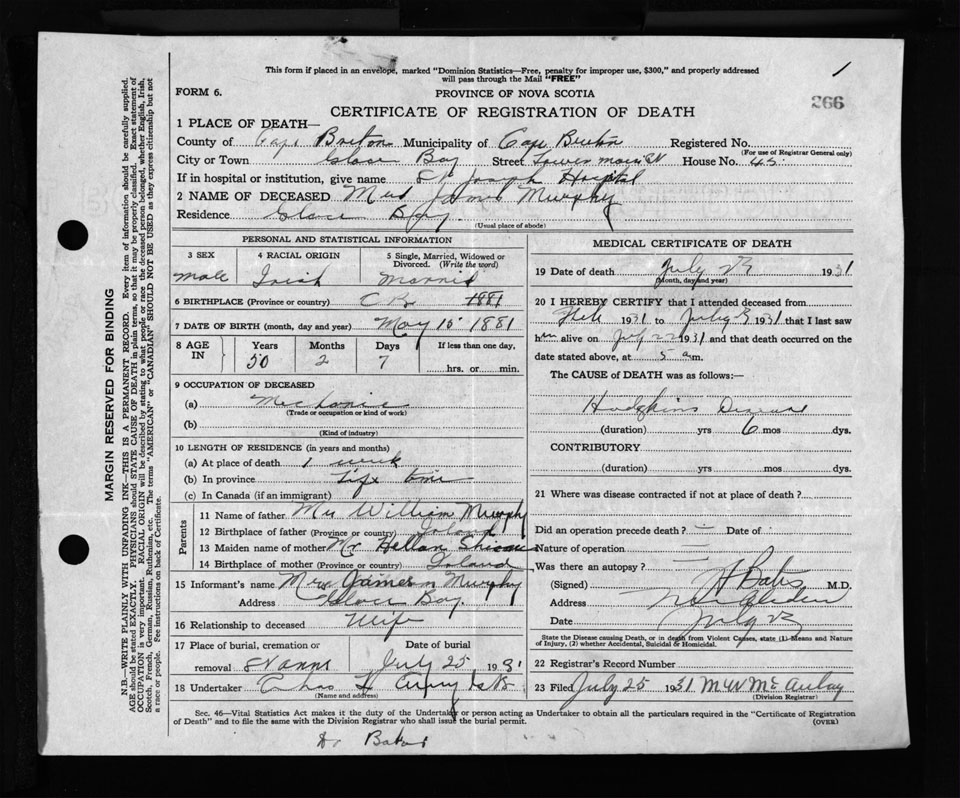 This form if placed in an envelope, marked "Dominion Statistics—Free, penalty for improper use, $300," and properly addressed
will pass through the Mail "FREE"
1
266
FORM 6.
PROVINCE OF NOVA SCOTIA
CERTIFICATE OF REGISTRATION OF DEATH
1 PLACE OF DEATH—
County of Cape Breton Municipality of Cape Breton Registered No.
(For use of Registrar General only)
City or Town Glace Bay Street House No. 45
If in hospital or institution, give name St Joseph Hospital
2 NAME OF DECEASED James Murphy
Residence Glace Bay.
(Usual place of abode)
PERSONAL AND STATISTICAL INFORMATION
3 SEX
Male
4 RACIAL ORIGIN
Irish
5 Single, Married, Widowed or
Divorced. (Write the word)
Married
6 BIRTHPLACE (Province or country) C B 1881
7 DATE OF BIRTH (month, day and year) May 15 1881
8 AGE IN
Years Months Days If less than one day,
50 2 7 hrs. or min.
9 OCCUPATION OF DECEASED
(a) Mechanic
(Trade or occupation or kind of work)
(b)
(Kind of industry)
10 LENGTH OF RESIDENCE (in years and months)
(a) At place of death 1 week
(b) In province Life time
(c) In Canada (if an immigrant)
Parents
11 Name of father William Murphy
12 Birthplace of father (Province or country)
13 Maiden name of mother Hellan
14 Birthplace of mother (Province or country)
15 Informant's name Mrs James Murphy
Address Glace Bay.
16 Relationship to deceased Wife
17 Place of burial, cremation or
removal St Anns
Date of burial
July 25 1931
18 Undertaker Chas
(Name and address)
MEDICAL CERTIFICATE OF DEATH
19 Date of death July 1931
(Month, day and year)
20 I HEREBY CERTIFY that I attended deceased from
1931 to July 1931 that I last saw
him alive on July 22 1931 and that death occurred on the
date stated above, at 5 a m.
The CAUSE of DEATH was as follows:—
Hodgkins Disease
(duration) yrs 6 mos dys.
CONTRIBUTORY
(duration) yrs. mos dys.
21 Where was disease contracted if not at place of death?
Did an operation precede death? Date of
Nature of operation
Was there an autopsy?
(Signed) M.D.
Address New Aberdeen
Date July
State the Disease causing Death, or in death from Violent Causes, state (1) Means and Nature
of Injury, (2) whether Accidental, Suicidal or Homicidal.
22 Registrar's Record Number
23 Filed July 25 1931 M W McAulay
(Division Registrar)
Sec. 46—Vital Statistics Act makes it the duty of the Undertaker or person acting as Undertaker to obtain all the particulars required in the "Certificate of Registration
of Death" and to file the same with the Division Registrar who shall issue the burial permit.
(OVER)
MARGIN RESERVED FOR BINDING
N.B.—WRITE PLAINLY WITH UNFADING INK—THIS IS A PERMANENT RECORD. Every item of information should be carefully supplied.
AGE should be stated EXACTLY. PHYSICIANS should STATE CAUSE OF DEATH in plain terms, so that it may be properly classified. Exact statement of
OCCUPATION is very important. RACIAL ORIGIN will be described by stating to what people or race the deceased person belonged, whether English, Irish,
Scotch, French, German, Russian, Ruthenian, etc. The terms "AMERICAN" or "CANADIAN" SHOULD NOT BE USED as they express citizenship but not
a race or people. Fee instructions on back of Certificate.